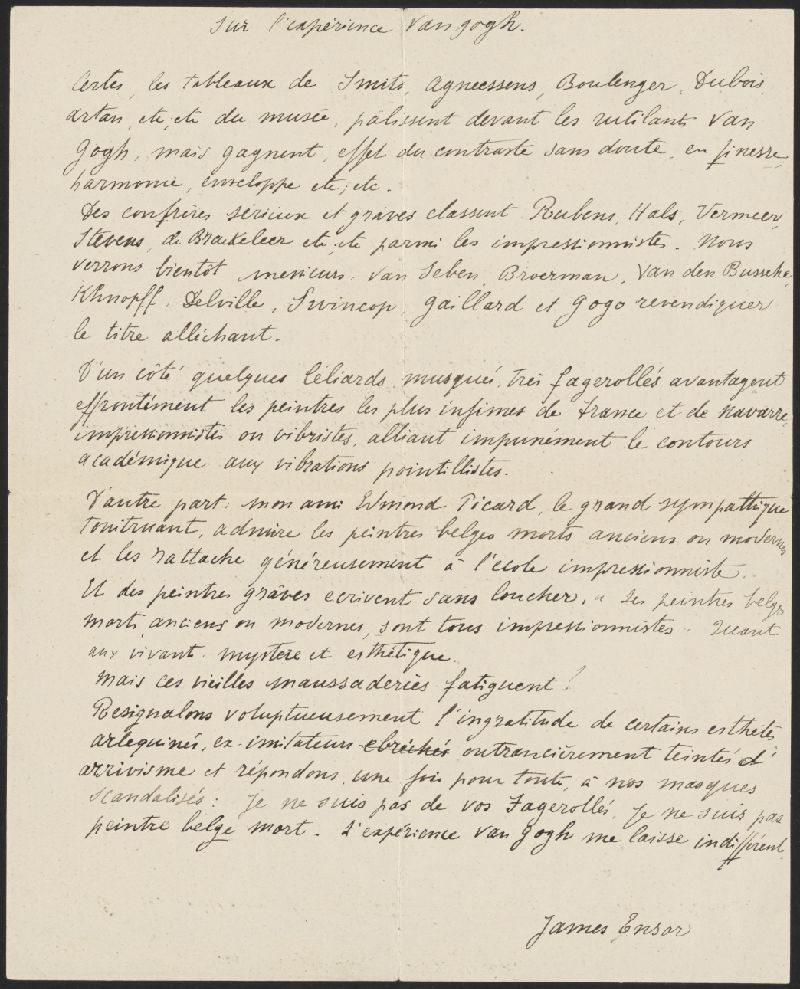 Sur l'expérience Van gogh.
Certes, les tableaux de Smits, Agneessens, Boulenger, Dubois,
Artan, etc, etc du musée, pâlissent devant les rutilants Van
Gogh, mais gagnent, effet du contraste sans doute, en finesse,
harmonie, enveloppe etc, etc.
Des confrères sérieux et graves classent Rubens, Hals, Vermeer,
Stevens, de Braekeleer etc, etc parmi les impressionnistes. Nous
verrons bientôt messieurs Van Seben, Broerman, Van den Bussche,
Khnopff, Delville, Swincop, Gaillard et Gogo revendiquer
le titre alléchant.
D'un côté quelques léliards musqués, très fagerollés avantagent
effrontément les peintres les plus infimes de France et de Navarre,
impressionnistes ou vibristes, alliant impunément le contours
académique aux vibrations pointillistes.
D'autre part, mon ami Edmond Picard, le grand sympathique
tonitruant, admire les peintres belges morts anciens ou modernes
et les rattache généreusement à l'école impressionniste.
Et des peintres graves écrivent sans loucher. " Ses peintres belges
morts, anciens ou modernes, sont tous impressionnistes. Quant
aux vivants mystère et esthétique
Mais ces vieilles maussaderies fatiguent !
Resignalons voluptueusement l'ingratitude de certains esthètes
arlequinés, ex-imitateurs outrancièrement teintés d'
arrivisme et répondons, une fois pour toute, à nos masques
scandalisés : Je ne suis pas de vos Fagerollés, Je ne suis pas
peintre belge mort. L'expérience Van Gogh me laisse indifférent.
James Ensor